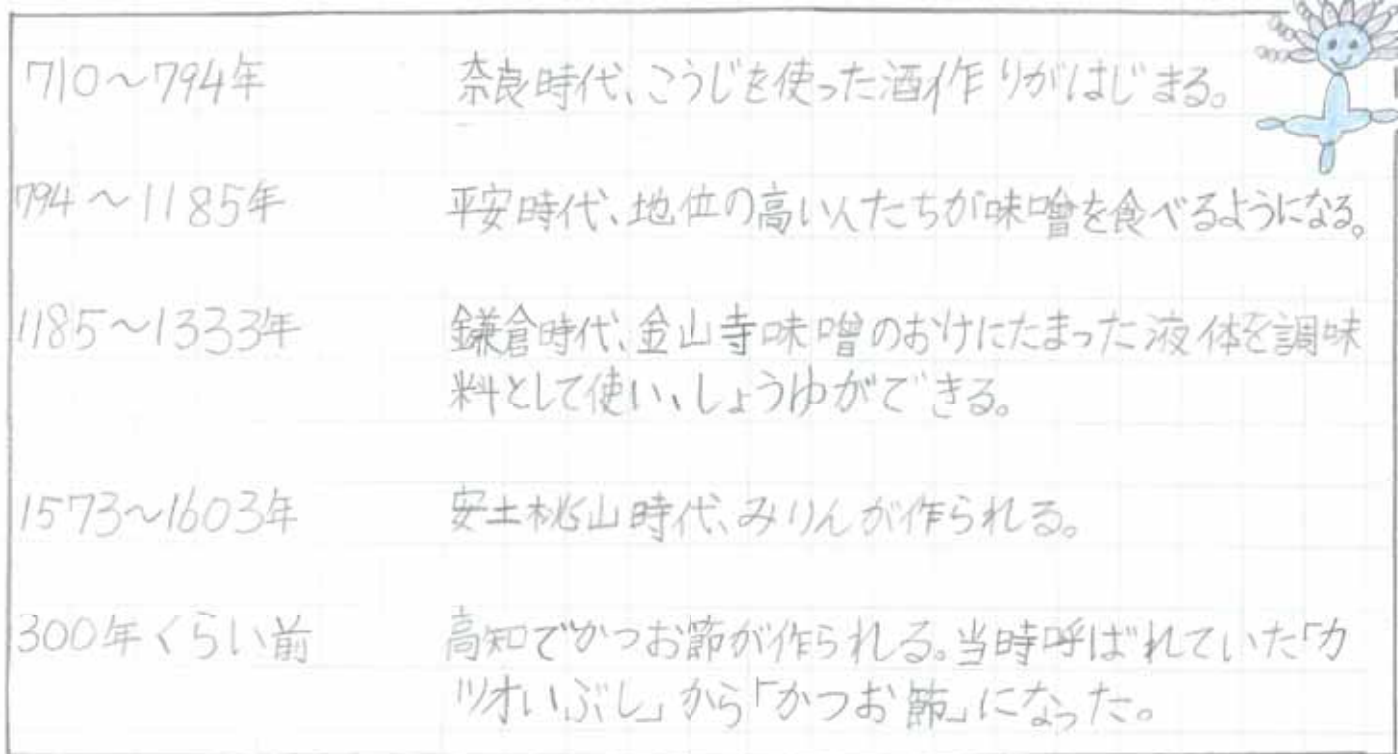 710～794年 奈良時代、こうじを使った酒作りがはじまる。
794～1185年 平安時代、地位の高い人たちが味噌を食べるようになる。
1185～1333年 鎌倉時代、金山寺味噌のおけにたまった液体を調味
料として使い、しょうゆができる。
1573～1603年 安土桃山時代、みりんが作られる。
300年くらい前 高知でかつお節が作られる。当時呼ばれていた「カ
ツオいぶし」から「かつお節」になった。